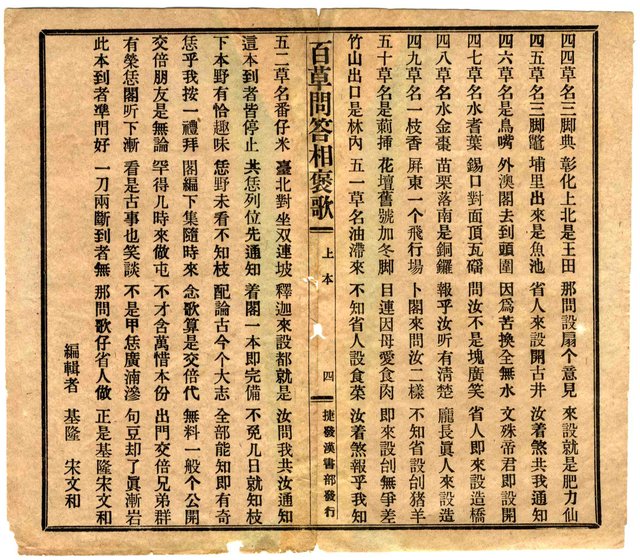 四四草名三脚典　彰化上北是王田　那問設扇个意見　來設就是肥力仙
四五草名三脚鼈　埔里出來是魚池　省人來設開古井　汝着煞共我通知
四六草名是鳥嘴　外澳閣去到頭圍　因為苦換全無水　文殊帝君即設開
四七草名水耆葉　錫口對面頂瓦磘　問汝不是塊廣笑　省人即來設造橋
四八草名水金棗　苗栗落南是銅鑼　報乎汝听有清楚　龐長真人來設造
四九草名一枝香　屏東一个飛行場　卜閣來問汝二樣　不知省設刣猪羊
五十草名是莿揷　花壇舊號加冬脚　目連因母愛食肉　即來設刣無爭差
竹山出口是林內　五一草名油滯來　不知省人設食菜　汝着煞報乎我知
百草問答相褒歌　上本　四　捷發漢書部發行
五二草名番仔米　臺北對坐双連坡　釋迦來設都就是　汝問我共汝通知
這本到者皆停止　共恁列位先通知　着閣一本即完備　不免几日就知枝
下本野有恰趣味　恁野未看不知枝　配論古今个大志　全部能知即有奇
恁乎我按一禮拜　閣編下集隨時來　念歌算是交倍代　無料一般个公開
交倍朋友是無論　罕得几時來做屯　不才含萬惜本份　出門交倍兄弟群
有榮恁閣听下漸　看是古事也笑談　不是甲恁廣滴滲　句豆却了眞漸岩
此本到者準門好　一刀兩斷到者無　那問歌仔省人做　正是基隆宋文和
編輯者　基隆　宋文和